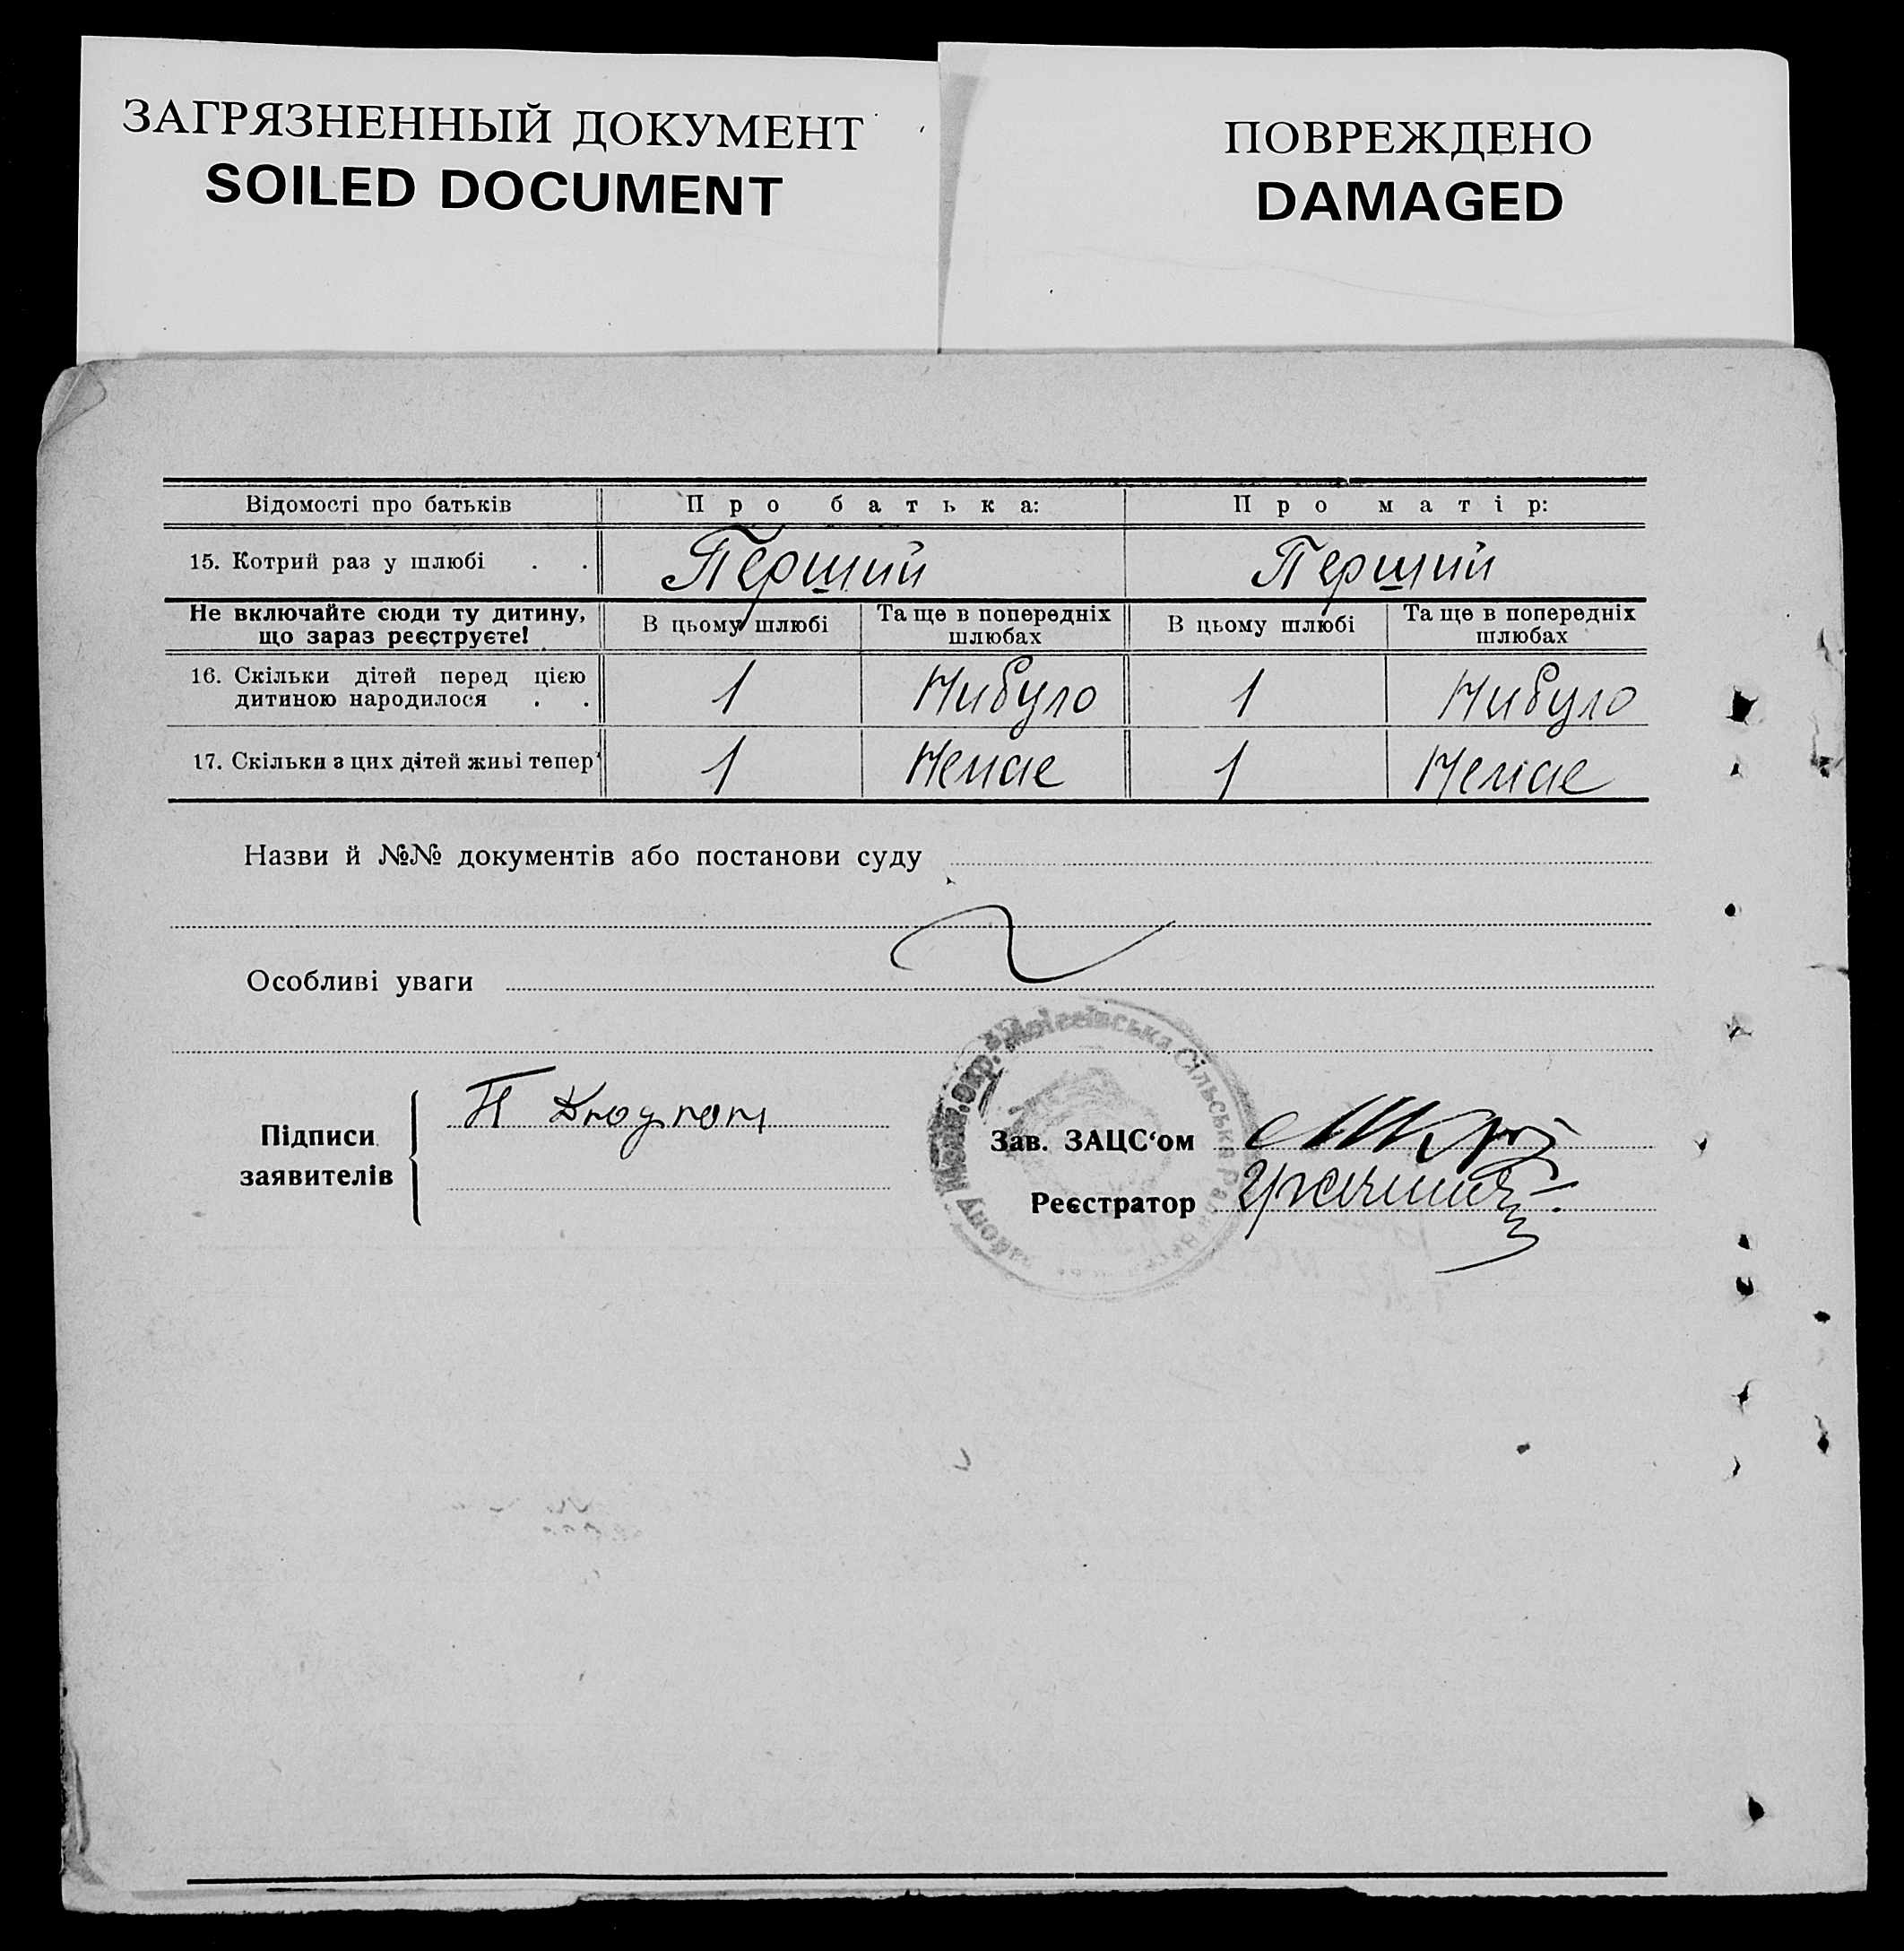 ЗАГРЯЗНЕННЫЙ ДОКУМЕНТ
SOILED DOCUMENT
ПОВРЕЖДЕНО
DAMAGED
Відомості про батьків Про батька: Про матір:
15. Котрий раз у шлюбі . . Перший Перший
Не включайте сюди ту дитину, що зараз реєструєте! В цьому шлюбі Та ще в попередніх шлюбах В цьому шлюбі Та ще в попередніх шлюбах
16. Скільки дітей перед цією 1 Нибуло 1 Нибуло
дитиною народилося . .
17. Скільки з цих дітей живі тепер 1 Немае 1 Немае
Назви й №№ документів або постанови суду
Особливі уваги
Підписи
заявителів
Зав. ЗАЦС‘ом
Реєстратор
Сільська Рада